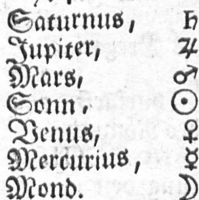 Saturnus, ♄
Jupiter, ♃
Mars, ♂
Sonn ☉
Venus, ♀
Mercurius, ☿
Mond. ☽